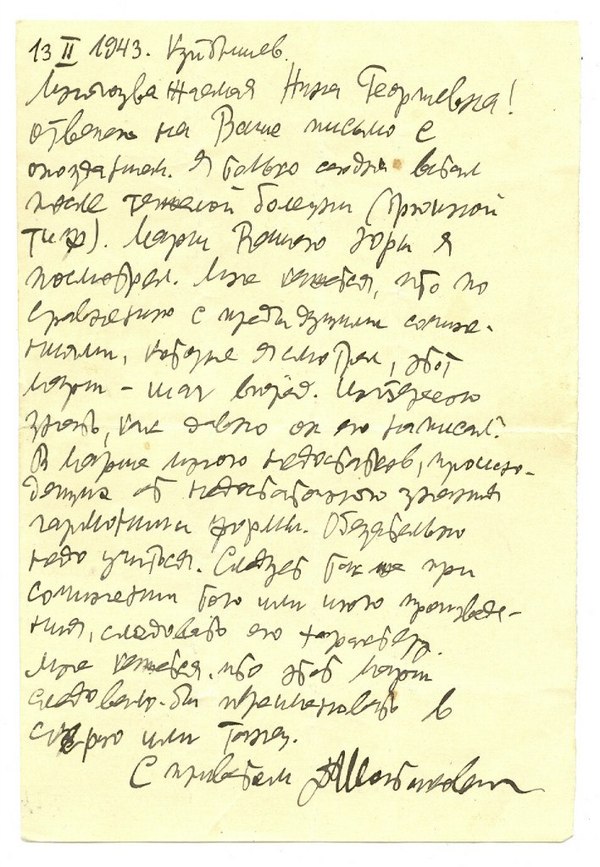 13 II 1943. Куйбышев.
Многоуважаемая Нина Георгиевна!
Отвечаю на Ваше письмо с
опозданием. Я только сегодня встал
после тяжелой болезни (брюшной
тиф). Марш Вашего Юры я
посмотрел. Мне кажется, что по
сравнению с предыдущими сочине-
ниями, которые я смотрел, этот
марш – шаг вперед. Интересно
знать, как давно он его написал?
В марше много недостатков, происхо-
дящих от недостаточного знания
гармонии и формы. Обязательно
надо учиться. Следует также при
сочинении того или иного произведе-
ния, следовать его характеру.
Мне кажется, что этот марш
следовало бы переименовать в
скерцо или Танец.
С приветом ДШостакович